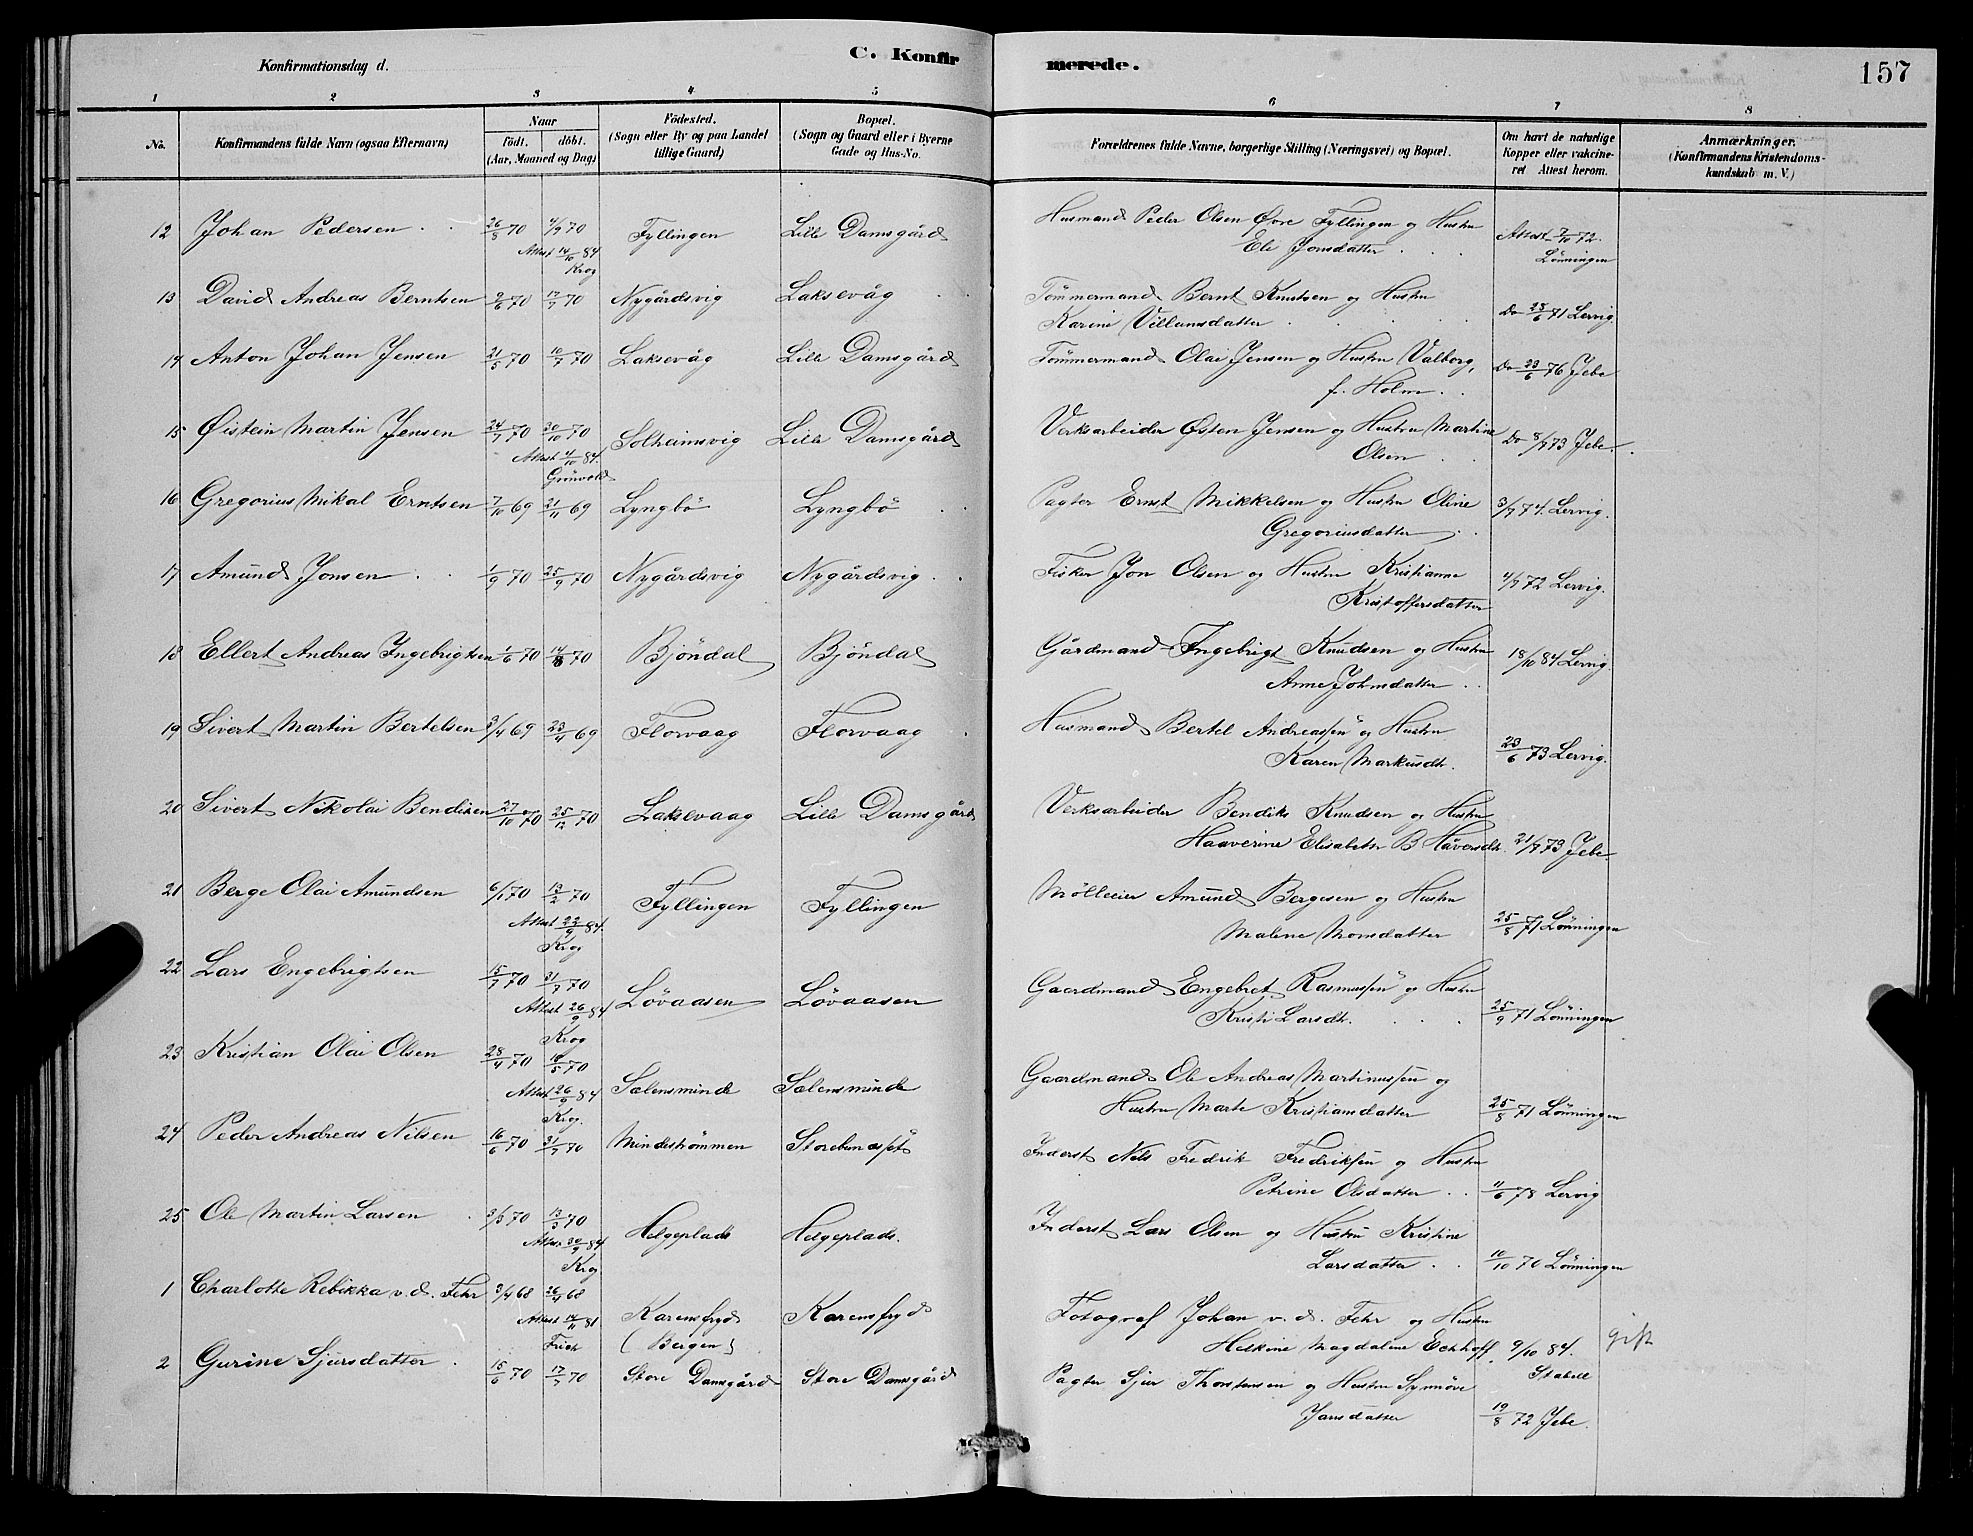 C. Konfirmerede.
157
Konfirmationsdag d.
1 2 3 4 5 6 7 8
No.
Konfirmandens fulde Navn (ogsaa Efternavn)
Naar
født. døbt.
(Aar, Maaned og Dag)
Fødested.
(Sogn eller By og paa Landet
tillige Gaard)
Bopæl.
(Sogn og Gaard eller i Byerne
Gade og Hus-No.
Forældrenes fulde Navne, borgerlige Stilling (Næringsvei) og Bopæl.
Om havt de naturlige
Kopper eller vakcine-
ret Attest herom.
Anmærkninger.
(Konfirmandens Kristendoms-
kundskab m. V.)
12 Johan Pedersen 26/8 70 4/9 70 Fyllingen Lille Damsgård Husmand Peder Olsen Øvre Fyllingen og Hustru Attest 7/10 72.
Attest 14/10 84 Eli Jonsdatter Lönningen
Krog
13 David Andreas Berntsen 9/6 70 17/7 70 Nygårdsvig Laksevåg Tömmermand Bernt Knutsen og Hustru
Karine Villumsdatter Do 25/6 71 Lervig.
14 Anton Johan Jensen 21/5 70 10/7 70 Laksevåg Lille Damsgård Tömmermand Olai Jensen og Hustru Valborg, Do 23/6 76 Jebe
f. Holm
15 Øistein Martin Jensen 24/7 70 30/10 70 Solheimsvig Lille Damsgård Verksarbeider Østen Jensen og Hustru Martine Do 8/7 73 Jebe.
Attest 4/10 84. Olsen
Grönvold
16 Gregorius Mikal Erntsen 7/10 69 21/11 69 Lyngbö Lyngbö Pagter Ernst Mikkelsen og Hustru Oline 3/7 74. Lervig.
Gregoriusdatter
17 Amund Jonsen 1/9 70 25/9 70 Nygårdsvig Nygårdsvig Fisker Jon Olsen og Hustru Kristianne 4/7 72 Lervig.
Kristoffersdatter
18 Ellert Andreas Ingebrigtsen 1/6 70 14/8 70 Bjöndal Bjöndal Gårdmand Ingebrigt Knudsen og Hustru 18/10 84 Lervig.
Anne Johnsdatter
19 Sivert Martin Bertelsen 3/4 69 23/4 69 Florvaag Florvaag Husmand Bertel Andreassen og Hustru
Karen Markusdtr. 23/6 73 Lervig.
20 Sivert Nikolai Bendiksen 27/10 70 25/12 70 Laksevaag Lille Damsgård Verksarbeider Bendiks Knudsen og Hustru
Haaverine Elisabeth B Håversdtr. 21/7 73 Jebe
21 Berge Olai Amundsen 6/1 70 13/2 70 Fyllingen Fyllingen Mölleeier Amund Bergesen og Hustru
Attest 22/9 84. Malene Monsdatter 25/8 71 Lönningen
Krog
22 Lars Engebrigtsen 15/7 70 31/7 70 Lövaasen Lövaasen Gaardmand Engebret Rasmussen og Hustru
Attest 26/9 84 Kristi Larsdtr. 25/9 71 Lönningen
Krog
23 Kristian Olai Olsen 28/4 70 15/5 70 Sælensminde Sælensminde Gaardmand Ole Andreas Martinussen og
Attest 26/9 84 Hustru Marte Kristiansdatter 25/8 71 Lönningen
Krog.
24 Peder Andreas Nilsen 16/6 70 31/7 70 Mindeströmmen Inderst Nils Fredrik Fredriksen og Hustru
Petrine Olsdatter 11/6 78 Lervig
25 Ole Martin Larsen 3/3 70 13/3 70 Helgeplads Helgeplads. Inderst Lars Olsen og Hustru Kristine
Attest 30/9 84 Larsdatter 10/10 70 Lönningen
Krog
1 Charlotte Rebikka v. d. Fehr 3/4 68 26/4 68 Karensfryd Karensfryd Fotograf Johan v. d. Fehr og Hustru
Attest 14/11 81 (Bergen) Helkine Magdalene Eckhoff. 9/10 84. gift
Frich Stabell
2 Gurine Sjursdatter 15/6 70 17/7 70 Store Damsgård Store Damsgård Pagter Sjur Thorstensen og Hustru Synnöve
Jansdatter 19/8 72 Jebe.